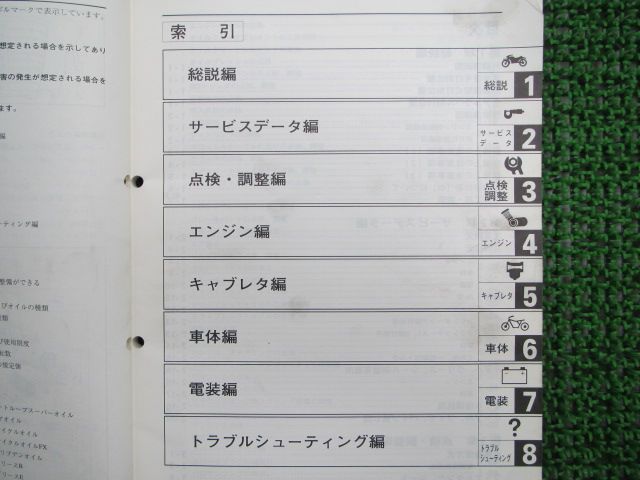 ルマークで表示しています。
想定される場合を示してあり
害の発生が想定される場合を
ます。
編
ーティング編
整備ができる
びオイルの種類
種類
び使用限度
転数
の推定値
ートループスーパーオイル
オイル
イクルオイル
イクルオイルFX
リブデンオイル
リースB
リースB
索 引
総説編
総説
1
サービスデータ編
サービス
データ
2
点検・調整編
点検
調整
3
エンジン編
エンジン
4
キャブレタ編
キャブレタ
5
車体編
車体
6
電装編
電装
7
トラブルシューティング編
?
トラブル
シューティング
8